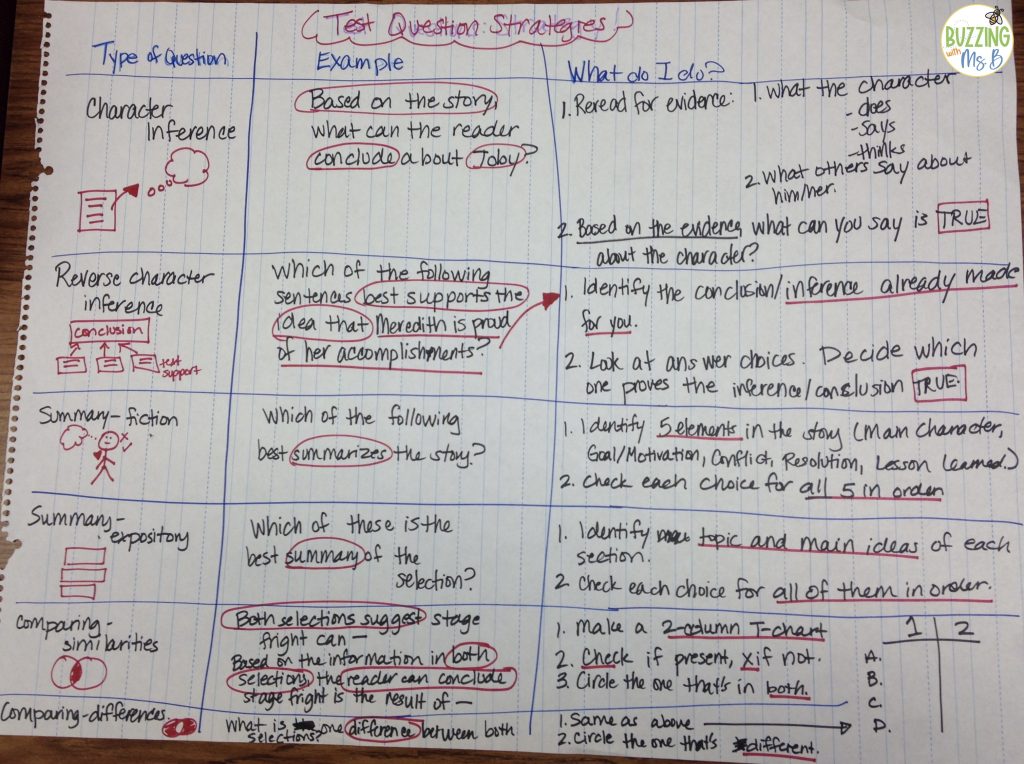 Test Question Strategies
BUZZING
with
Ms B
Type of Question
Example
What do I do?
Character
Inference
Based on the story,
what can the reader
conclude about Toby?
1. Reread for evidence:
1. What the character
- does
- says
- thinks
2. What others say about
him/her.
2. Based on the evidence, what can you say is TRUE
about the character?
Reverse character
inference
conclusion
text
support
Which of the following
sentences best supports the
idea that Meredith is proud
of her accomplishments?
1. Identify the conclusion/inference already made
for you.
2. Look at answer choices. Decide which
one proves the inference/conclusion TRUE.
Summary-fiction
Which of the following
best summarizes the story?
1. Identify 5 elements in the story (Main Character,
Goal/Motivation, Conflict, Resolution, Lesson Learned.)
2. Check each choice for all 5 in order
Summary-
expository
Which of these is the
best summary of the
selection?
1. Identify topic and main ideas of each
section.
2 Check each choice for all of them in order.
Comparing-
similarities
Both selections suggest stage
fright can —
Based on the information in both
selections, the reader can conclude
stage fright is the result of —
1. Make a 2-column T-chart
2. Check if present, x if not.
3. Circle the one that's in both.
1 2
A.
B.
C.
D.
Comparing-differences
What is one difference between both
selections?
1. Same as above
2. Circle the one that's different.